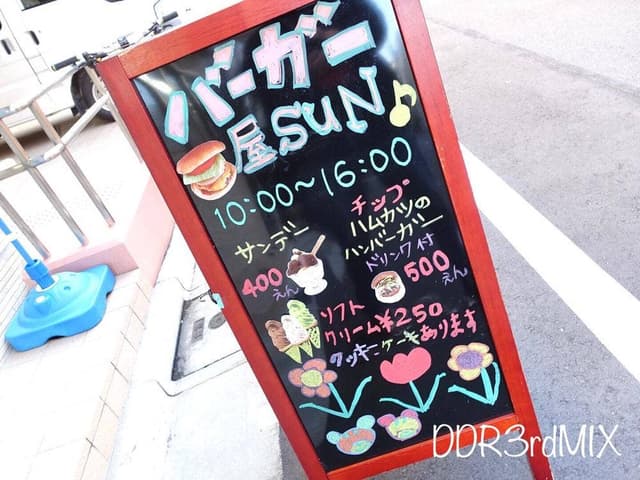 バーガー
屋SUN♪
10:00~16:00
サンデー
400
えん
チップ
ハムカツの
ハンバーガー
ドリンク付
500
えん
ソフト
クリーム¥250
クッキーケーキあります
DDR3rdMIX